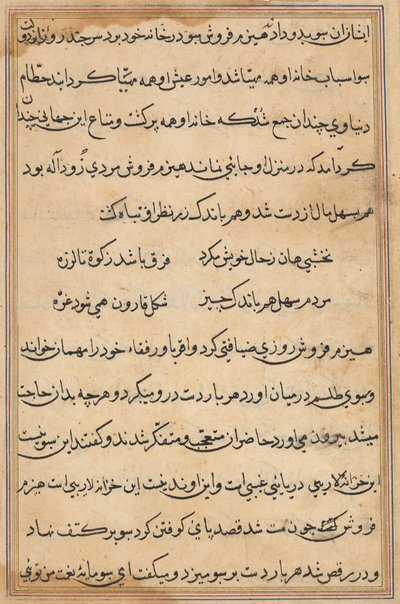 انبازان سبو بدو دادند هیزم فروش سبو در خانه خود برد سر چند روز ازو
سوا سباب خانه او همه مهیا شد و امور عیش او همه مهیا کرد اند حطام
دنیاوی چندان جمع شد که خانه او همه پر گشت و متاع این جهانی چندان
گرد آمد که در منزل او جائی نماند هیزم فروش مردی زود آله بود
هم بسهل مال از دست شد و هم باندک زر نظر او تباه گشت
نخشبی هان ز حال خویش مگرد فرق باشد ز کوه تا لرزه
مردم سهل هم باندک چیز شکل قارون همی شود غره
هیزم فروش روزی ضیافتی کرد و اقربا و رفقاء خود را مهمان خواند
و سبوی طلسم در میان اورد هر بار دست در و میکرد و هر چه بدان حاجت
میشد بیرون می اورد حاضران متعجب و متفکر شدند و گفتند این سبو نیست
این خزانه لاریبی دریائی غیبی است و این اوند نیست این خزانه لاریبی است هیزم
فروش چون مست شد قصد پای کوفتن کرد سبو بر کتف نهاد
و در رقص شد هر بار دست بر سبو میزد و میگفت ای سو مایه بخت من توئی